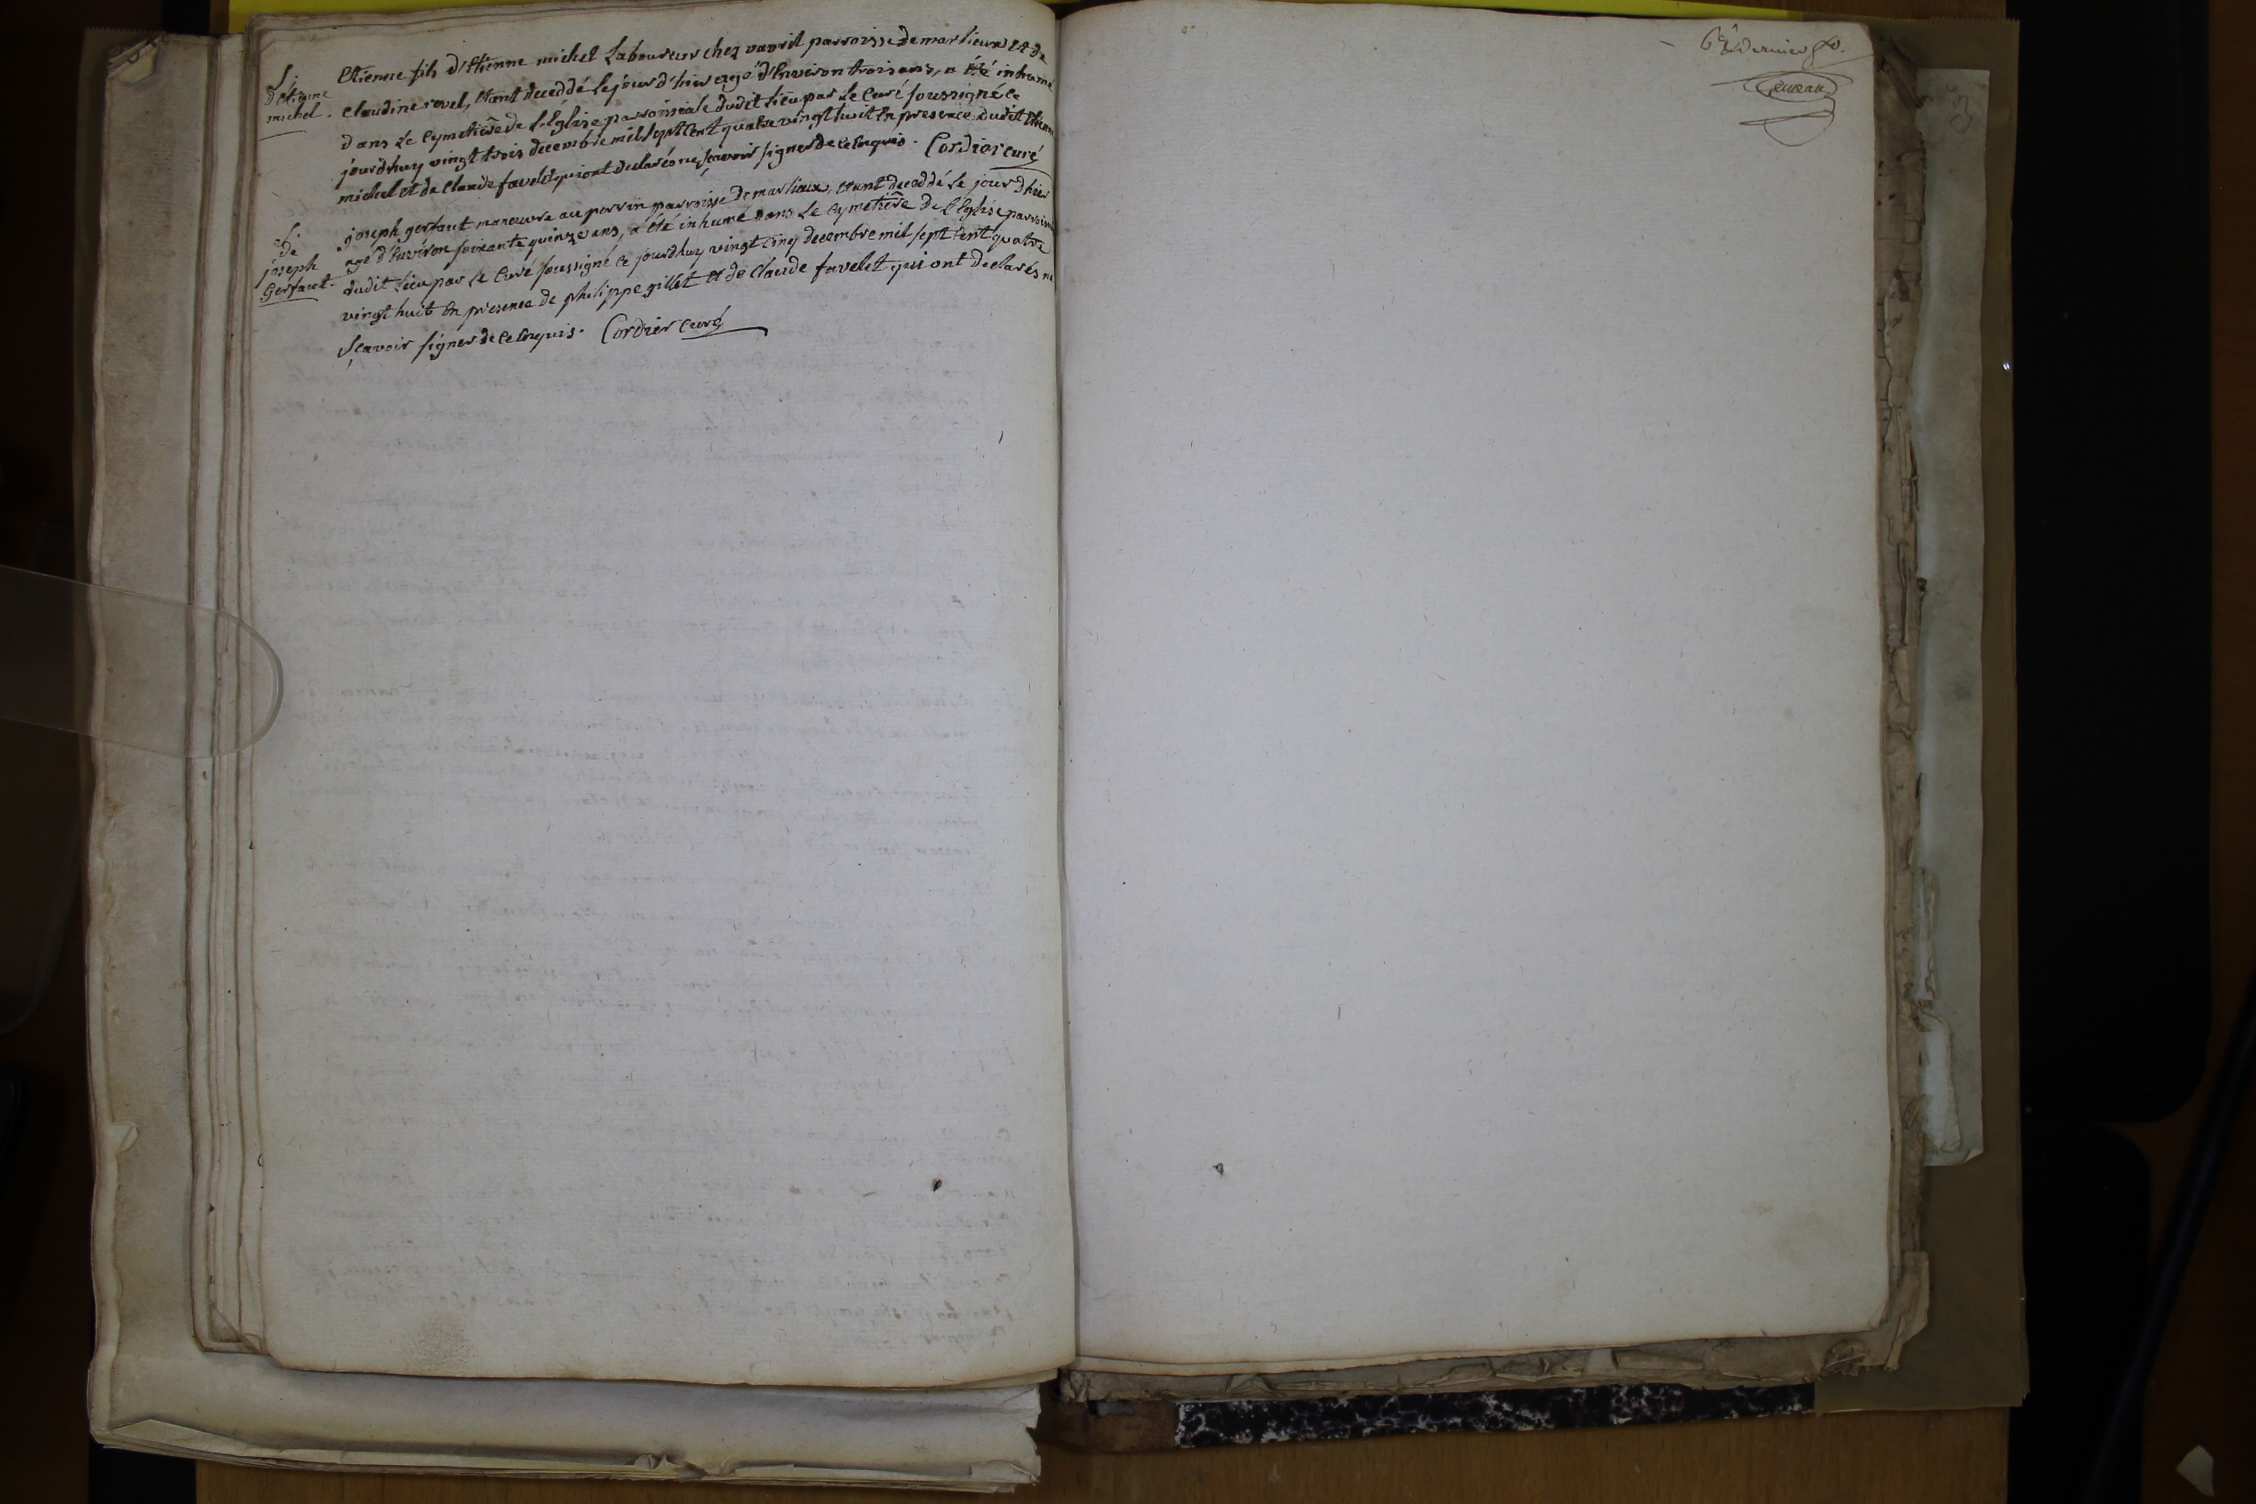 S.
d'etienne
michel.
Etienne fils d'Etienne michel Laboureur chez vavril parroisse de marlieux et de
Claudine revel, étant deceddé le jour d'hier agé d'Environ trois ans, a été inhumé
dans Le Cymetière de L'Eglise parroissiale dudit lieu par Le Curé soussigné ce
jourdhuy vingt trois decembre mil sept cent quatre vingt huit En presence dudit Etienne
michel et de Claude favelet qui ont declarés ne sçavoir signer de ce Enquis. Cordier curé
S.
de
joseph
Gerfaut.
joseph gerfaut manœuvre au perrin parroisse de marlieux, étant deceddé Le jour d'hier
agé d'Environ soixante quinze ans, a été inhumé dans Le Cymetière de L'Eglise parroissiale
dudit Lieu par Le Curé soussigné ce jourdhuy vingt cinq decembre mil sept cent quatre
vingt huit En presence de philippe gillet et de Claude favelet qui ont declarés ne
sçavoir signer de ce Enquis. Cordier Curé
6e & dernier fo.